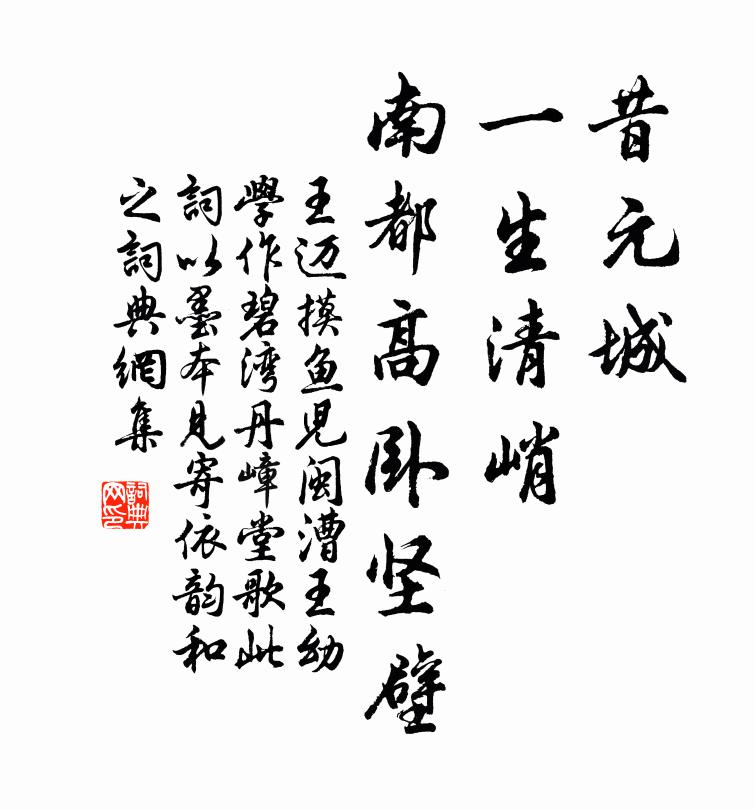 昔元城
一生清峭
南都高卧坚壁
王迈摸鱼儿闽漕王幼
學作碧湾丹嶂堂歌此
詞以墨本见寄依韵和
之詞典網集
詞典
网印